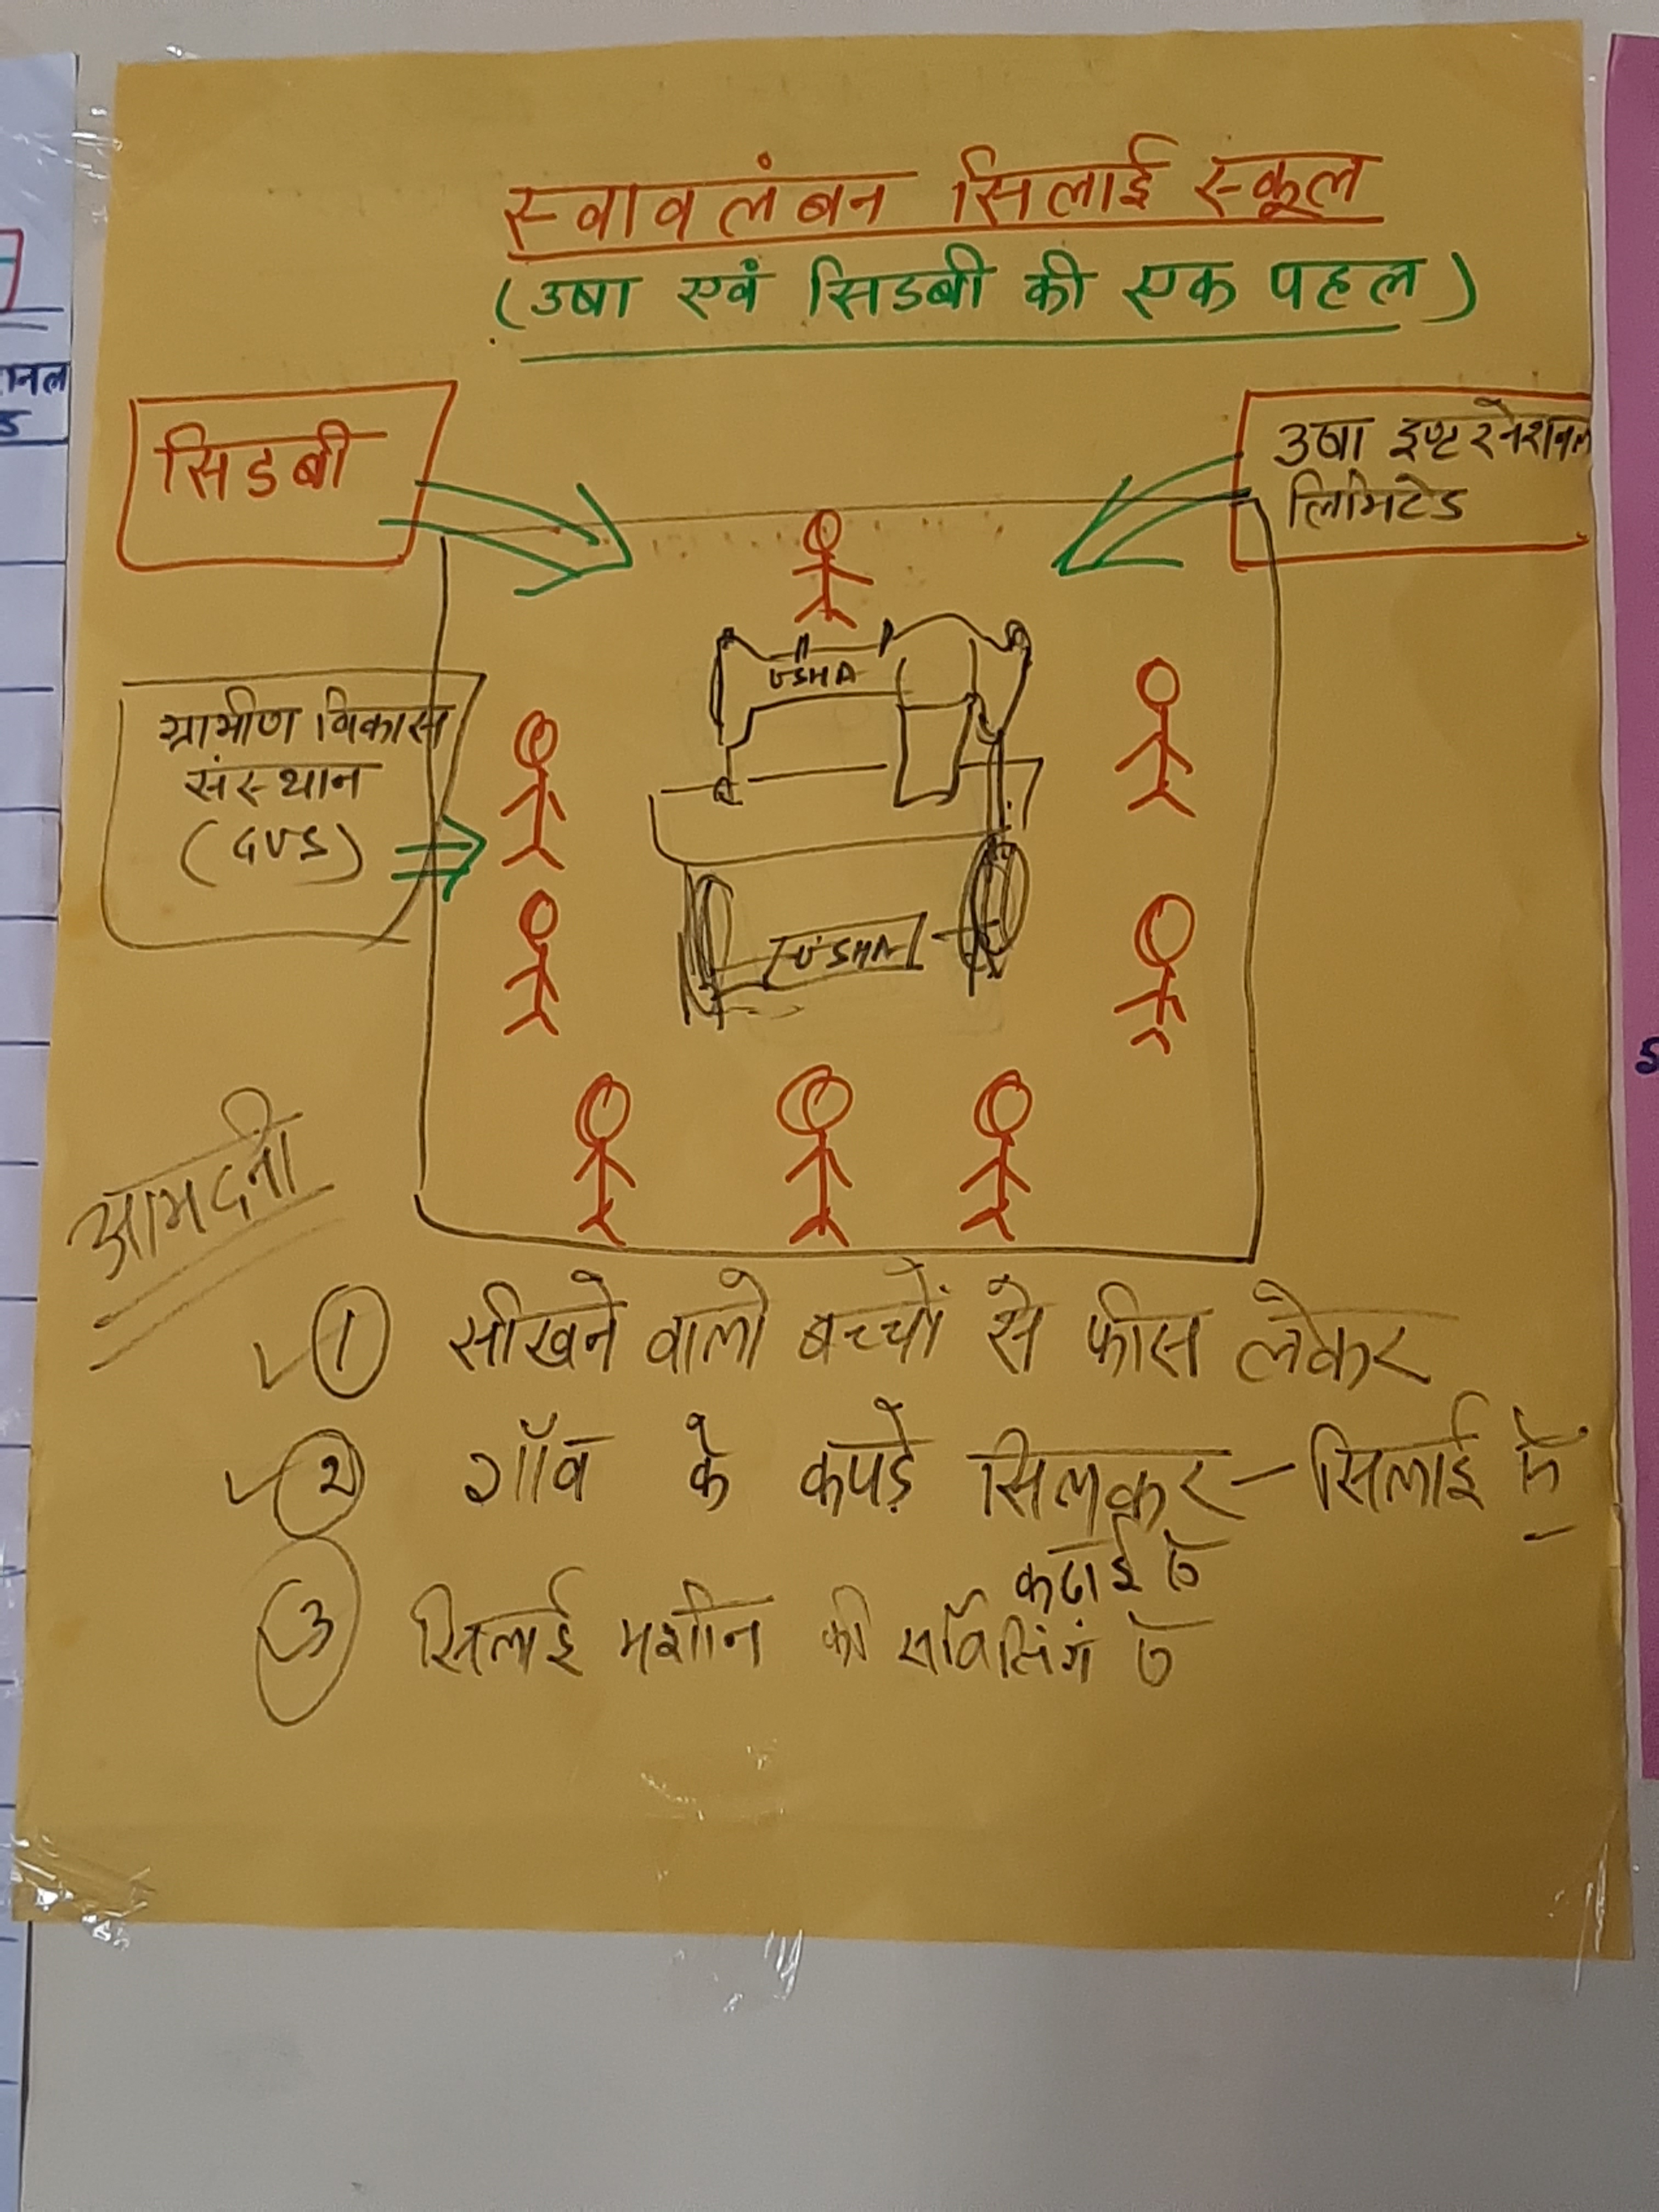 स्वावलंबन सिलाई स्कूल
(उषा एवं सिडबी की एक पहल)
सिडबी
उषा इण्टरनेशनल
लिमिटेड
USHA
ग्रामीण विकास
संस्थान
(GVS)
USHA
आमदनी
① सीखने वाले बच्चों से फीस लेकर
② गाँव के कपड़े सिलकर - सिलाई से
कढाई से
③ सिलाई मशीन की सर्विसिंग से